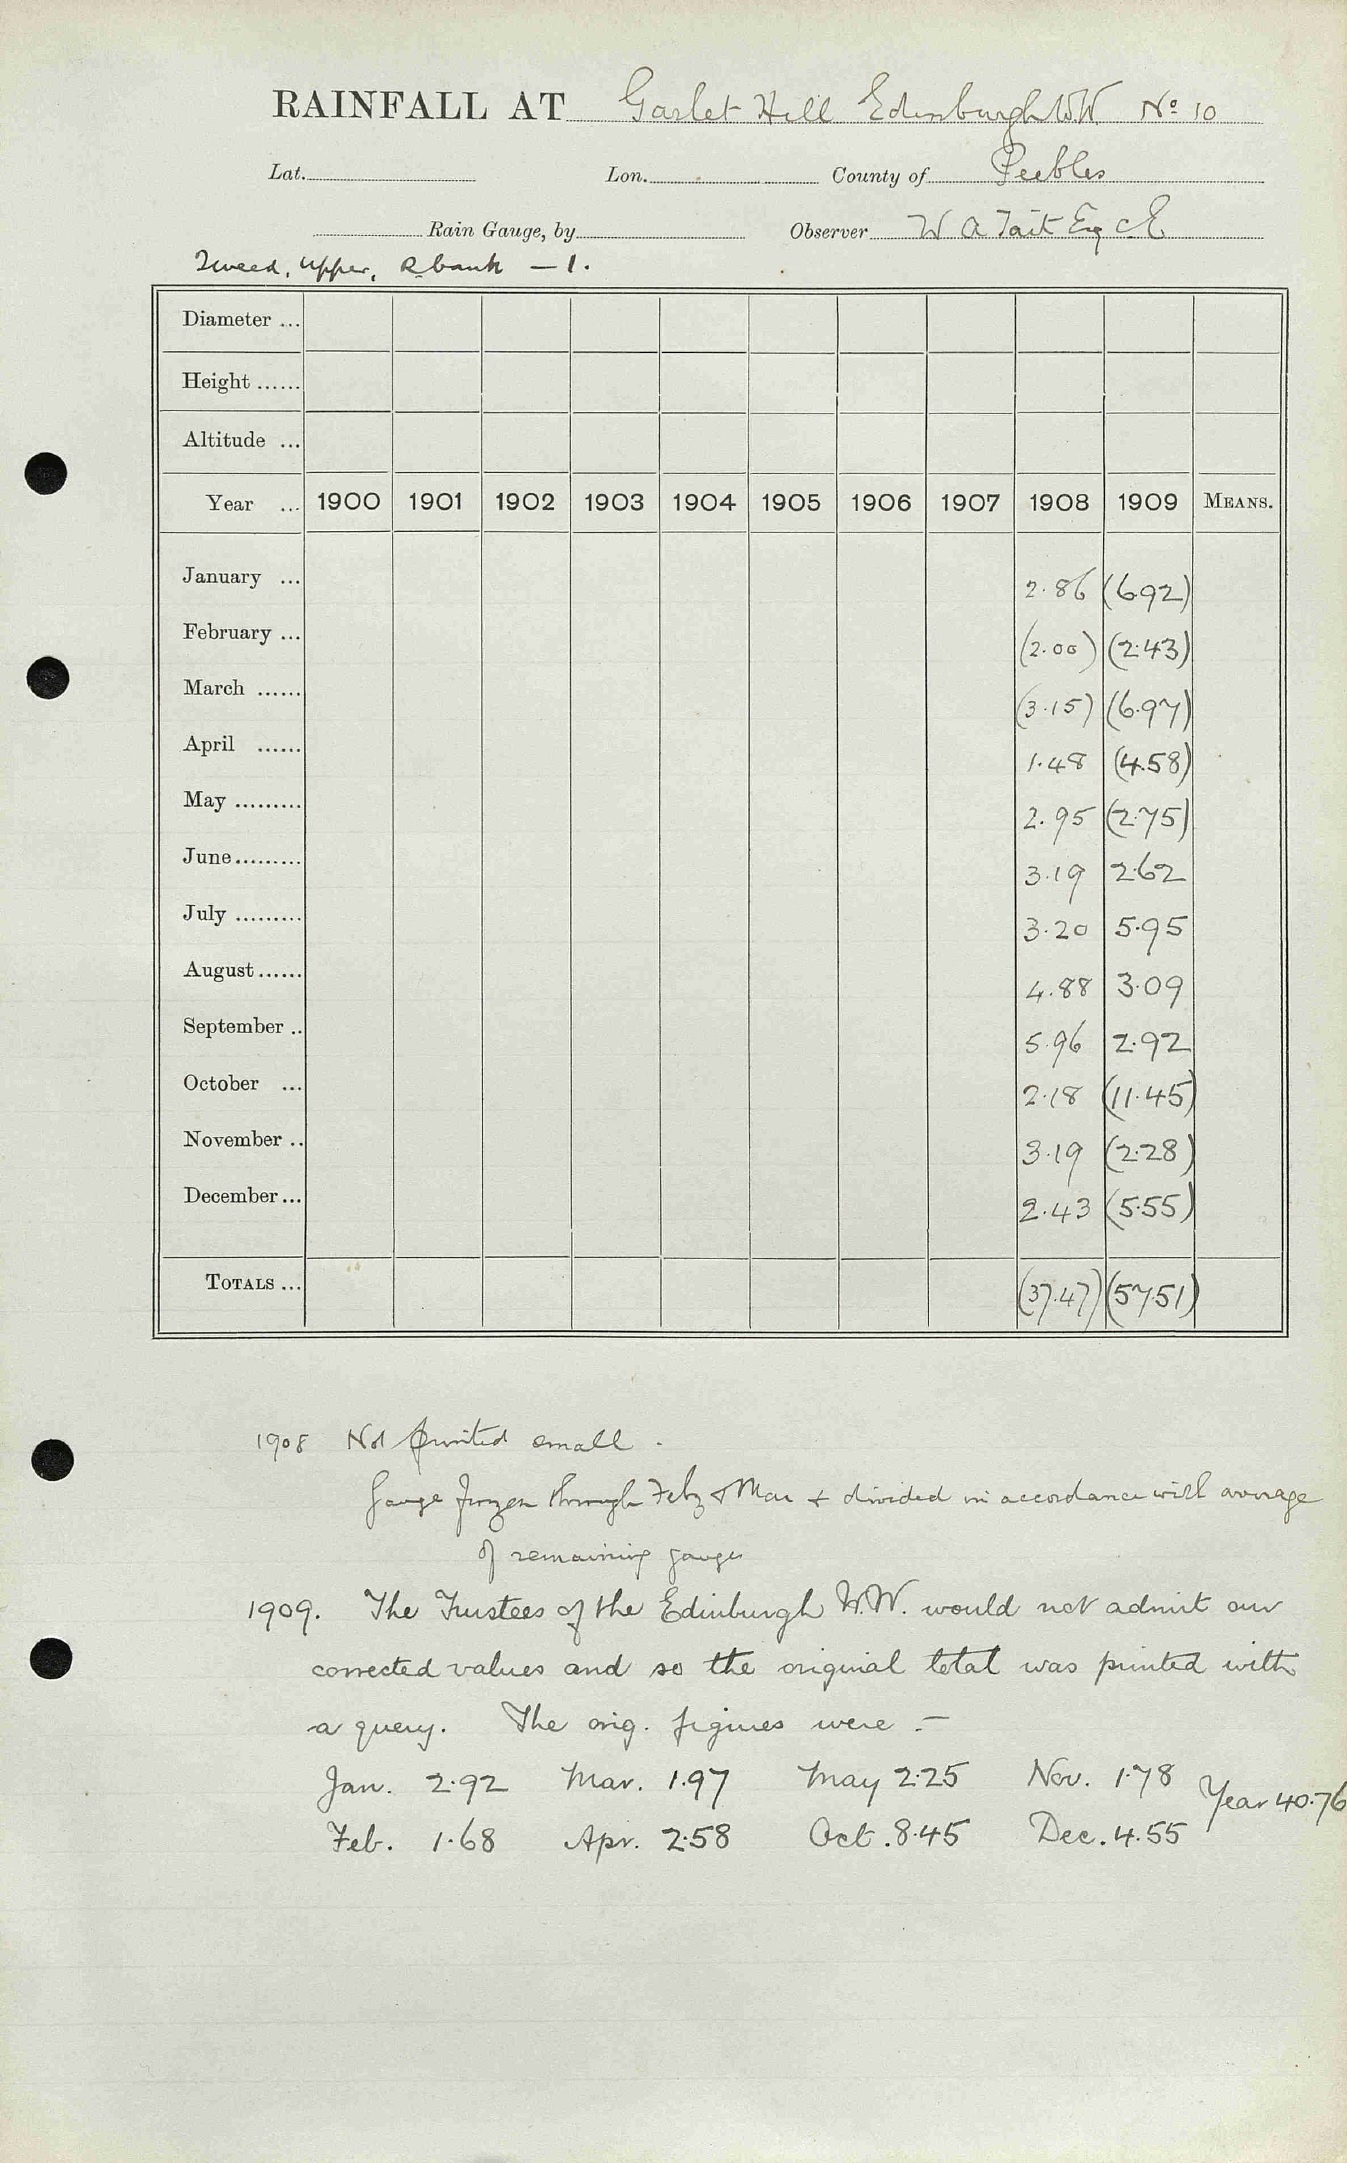 RAINFALL AT Garlet Hill Edinburgh W.W. Nº 10
Lat. Lon. County of Peebles
Rain Gauge, by Observer W A Tait Esq CE
Tweed, Upper, R bank — 1.
Diameter ...
Height ......
Altitude ...
Year ... 1900 1901 1902 1903 1904 1905 1906 1907 1908 1909 MEANS.
January ... 2.86 (6.92)
February ... (2.00) (2.43)
March ...... (3.15) (6.97)
April ...... 1.48 (4.58)
May ......... 2.95 (2.75)
June......... 3.19 2.62
July ......... 3.20 5.95
August...... 4.88 3.09
September .. 5.96 2.92
October ... 2.18 (11.45)
November .. 3.19 (2.28)
December... 2.43 (5.55)
TOTALS ... (37.47) (57.51)
1908 Not printed small.
Gauge frozen through Feby & Mar & divided in accordance with average
of remaining gauges
1909. The Trustees of the Edinburgh W.W. would not admit our
corrected values and so the original total was printed with
a query. The orig. figures were :—
Jan. 2.92 Mar. 1.97 May 2.25 Nov. 1.78 Year 40.76
Feb. 1.68 Apr. 2.58 Oct. 8.45 Dec. 4.55